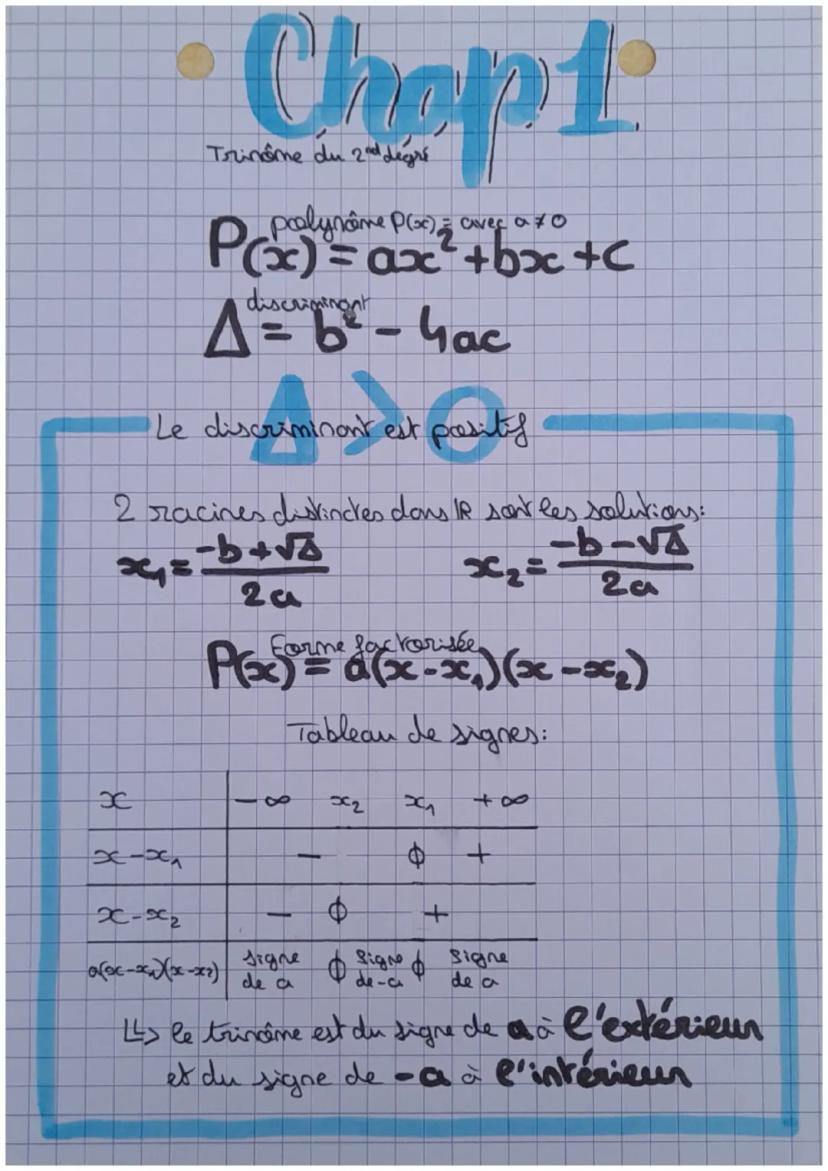 Chap 1
Trinôme du 2nd dégré
polynôme P(x) = avec a ≠ 0
P(x) = ax² + bx + c
discriminant
Δ = b² - 4ac
Δ > 0
Le discriminant est positif
2 racines distinctes dans ℝ sont les solutions:
x₁ = (-b + √Δ) / 2a    x₂ = (-b - √Δ) / 2a
Forme factorisée
P(x) = a(x - x₁)(x - x₂)
Tableau de signes:
x    -∞    x₂    x₁    +∞
x - x₁    -    0    +
x - x₂    -    0    +
a(x-x₁)(x-x₂)    signe de a    0    signe de -a    0    signe de a
↳> le trinôme est du signe de a à l'extérieur
et du signe de -a à l'intérieur